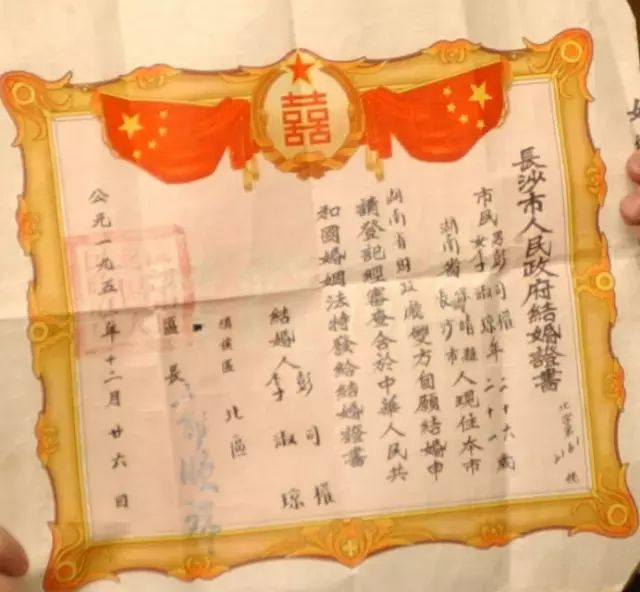 囍
長沙市人民政府結婚證書
北字第 號
市民男彭司權年二十六歲
女李淑瓊 二十一
湖南省 縣人現住本市
長沙市
湖南省財政廳雙方自願結婚申
請登記經審查合於中華人民共
和國婚姻法特發給結婚證書
結婚人彭司權
李淑瓊
北區
區長
公元一九五 年十二月廿六日